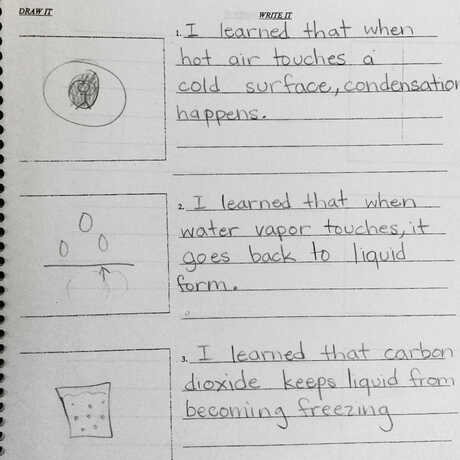 DRAW IT
WRITE IT
1. I learned that when
hot air touches a
cold surface, condensation
happens.
2. I learned that when
water vapor touches, it
goes back to liquid
form.
3. I learned that carbon
dioxide keeps liquid from
becoming freezing